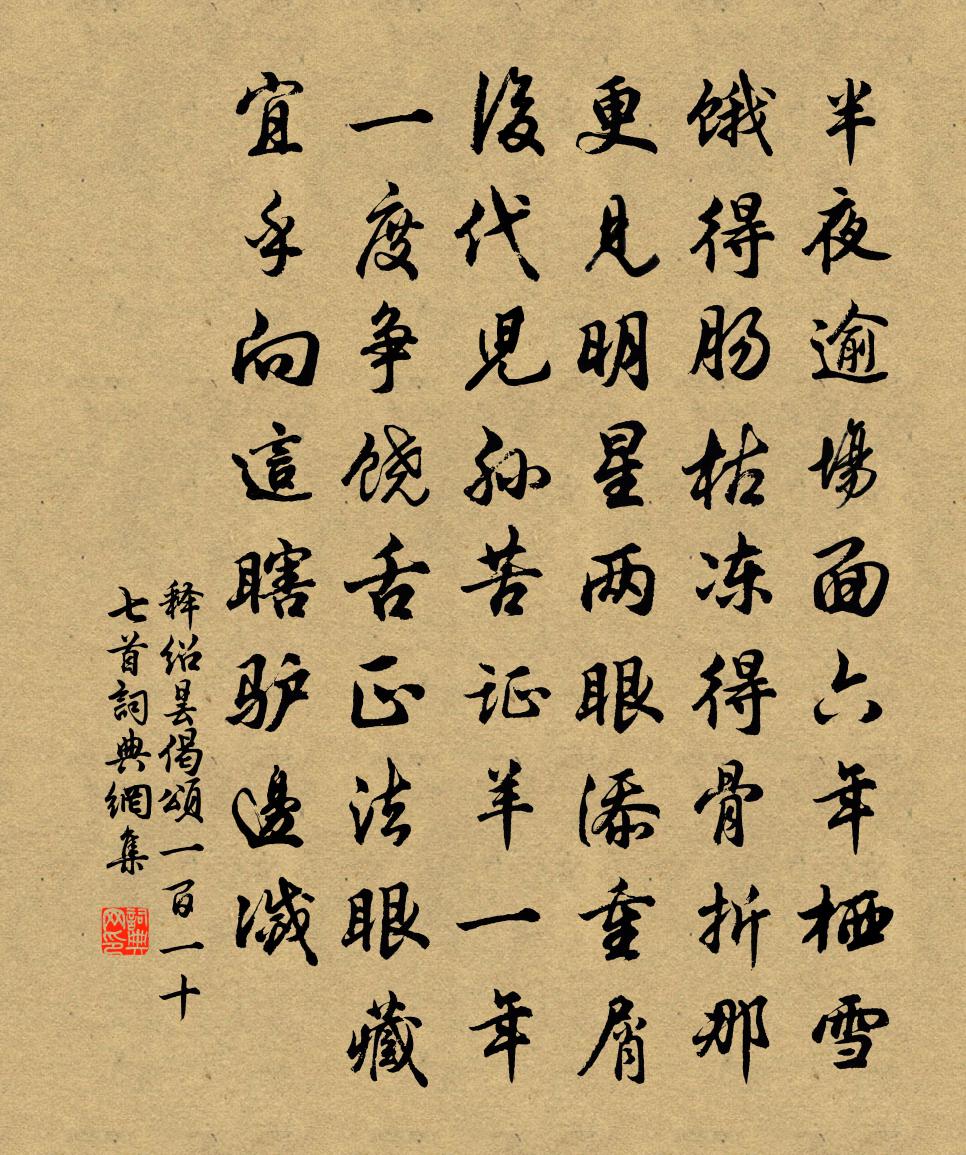 半夜逾場面六年栖雪
饿得肠枯冻得骨折那
更见明星两眼添重屑
後代児孙苦证羊一年
一度争饶舌正法眼藏
宜乎向這瞎驴邊滅
释绍昙偈颂一百一十
七首詞典網集
詞典网印